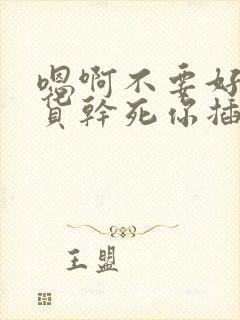 嗯啊不要好
貨幹死你插
王盟